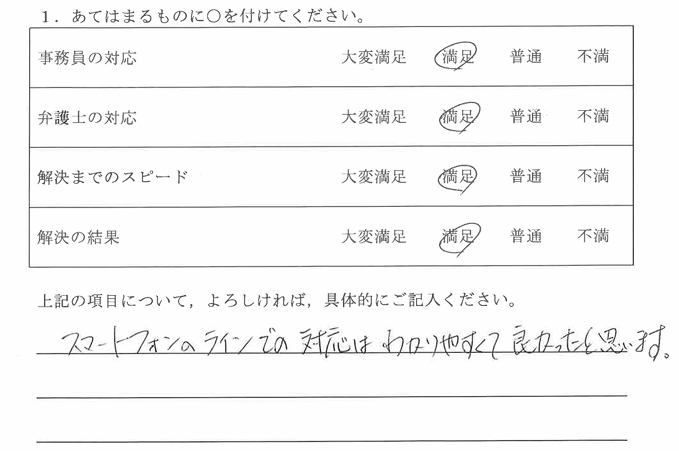 １．あてはまるものに○を付けてください。
事務員の対応 大変満足 満足 普通 不満
弁護士の対応 大変満足 満足 普通 不満
解決までのスピード 大変満足 満足 普通 不満
解決の結果 大変満足 満足 普通 不満
上記の項目について，よろしければ，具体的にご記入ください。
スマートフォンのラインでの対応はわかりやすくて良かったと思います。